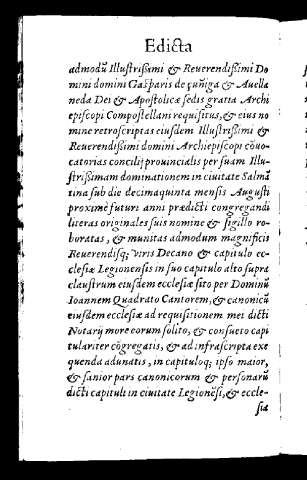 Edicta
admodũ Illustrißimi & Reuerendißimi Do
mini domini Gasparis de çuñiga & Auella
neda Dei & Apostolicæ sedis gratia Archi
episcopi Compostellani requisitus, & eius no
mine retroscriptas eiusdem Illustrißimi &
Reuerendißimi domini Archiepiscopi cõuo-
catorias concilij prouincialis per suam Illu-
strißimam dominationem in ciuitate Salmã
tina sub die decimaquinta mensis Augusti
proximè futuri anni prædicti congregandi
literas originales suis nomine & sigillo ro-
boratas, & munitas admodum magnificis
Reuerendisq; viris Decano & capitulo ec-
clesiæ Legionensis in suo capitulo alto supra
claustrum eiusdem ecclesiæ sito per Dominũ
Ioannem Quadrato Cantorem, & canonicũ
eiusdem ecclesiæ ad requisitionem mei dicti
Notarij more eorum solito, & consueto capi
tulariter cõgregatis, & ad infrascripta exe
quenda adunatis, in capituloq; ipso maior,
& sanior pars canonicorum & personarũ
dicti capituli in ciuitate Legionẽsi, & eccle-
siæ